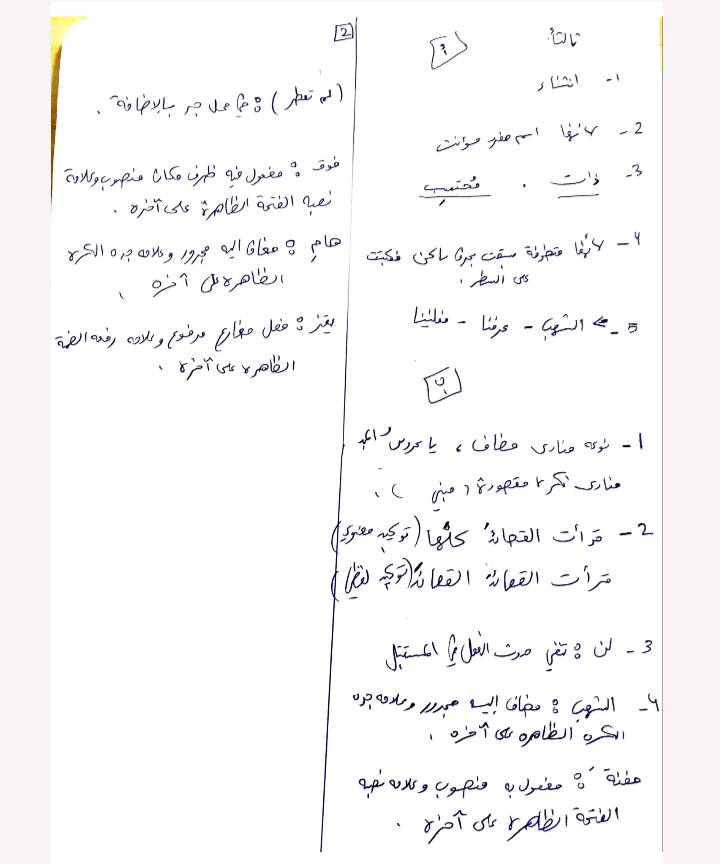 ثالثاً
أ
1- انشاء
2- لأنها اسم مفرد مؤنث
3- ذات . مُحتجب
4- لأنها متطرفة سبقت بحرف ساكن فكتبت
على السطر .
5- الشهب - عرفنا -
ب
1- نوعه منادى مضاف ، يا عروس المجد
منادى نكرة مقصودة ( مبني ) .
2- قرأت القصائدَ كلَّها (توكيد معنوي)
قرأت القصائدَ القصائدَ (توكيد لفظي)
3- لن : تنفي حدوث الفعل في المستقبل
4- الشهبِ : مضاف إليه مجرور وعلامه جره
الكسره الظاهره على آخره .
حفنةً : مفعول به منصوب وعلامه نصبه
الفتحة الظاهره على آخره .
2
(لم تعطر) : في محل جر بالإضافة .
فوق : مفعول فيه ظرف مكان منصوب وعلامة
نصبه الفتحة الظاهرة على آخره .
هامِ : مضاف اليه مجرور وعلامه جره الكسرة
الظاهره على آخره .
: فعل مضارع مرفوع وعلامه رفعه الضمة
الظاهره على آخره .